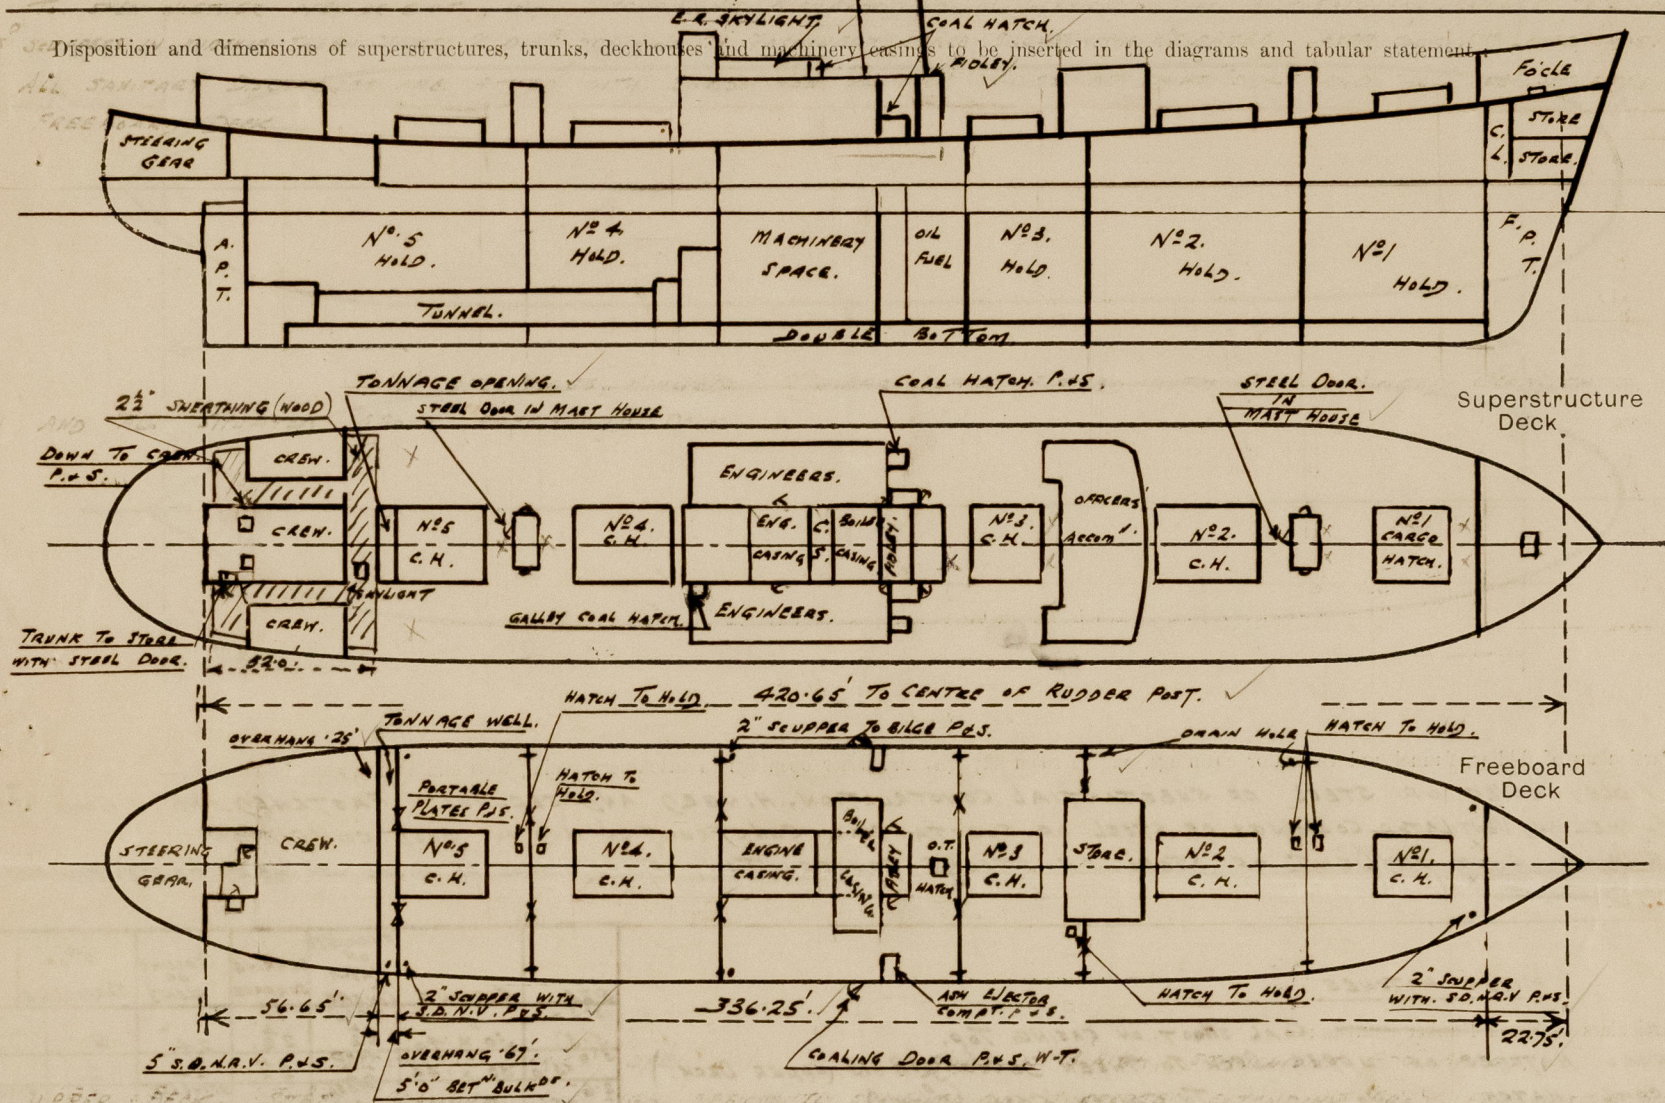 E.R. SKYLIGHT.
COAL HATCH.
Disposition and dimensions of superstructures, trunks, deckhouses and machinery casings to be inserted in the diagrams and tabular statement.
FIDLEY.
FO'CLE
STORE
STORE.
C.
L.
STEERING
GEAR
A.
P.
T.
No. 5
HOLD.
No 4.
HOLD.
MACHINERY
SPACE.
OIL
FUEL
No 3.
HOLD.
No 2.
HOLD.
No 1
HOLD.
F.
P.
T.
TUNNEL.
DOUBLE BOTTOM
TONNAGE OPENING.
COAL HATCH. P.&S.
STEEL DOOR.
IN
MAST HOUSE
2½" SHEATHING (WOOD)
STEEL DOOR IN MAST HOUSE
Superstructure
Deck
DOWN TO CREW
P.&S.
CREW.
ENGINEERS.
OFFICERS'
ACCOMn.
CREW.
No 5
C.H.
No 4.
C.H.
ENG.
CASING
C.
S.
BOILER
CASING
FIDLEY.
No 3
C.H.
No 2.
C.H.
No 1
CARGO
HATCH.
SKYLIGHT
GALLEY COAL HATCH.
ENGINEERS.
CREW.
TRUNK TO STORE
WITH STEEL DOOR.
52.0'
420.65' TO CENTRE OF RUDDER POST.
HATCH TO HOLD
TONNAGE WELL.
2" SCUPPER TO BILGE P&S.
DRAIN HOLE
HATCH TO HOLD.
OVERHANG .25'
Freeboard
Deck
PORTABLE
PLATES P&S.
HATCH TO
HOLD.
STEERING
GEAR.
CREW.
No. 5
C.H.
No 4.
C.H.
ENGINE
CASING.
BOILER
CASING.
FIDLEY
O.T.
HATCH
No 3
C.H.
STORE.
No 2
C.H.
No 1.
C.H.
56.65'
2" SCUPPER WITH
S.D.N.V. P&S.
336.25'
ASH EJECTOR
COMPT. P&S.
HATCH TO HOLD.
2" SCUPPER
WITH. S.D.N.R.V P&S.
22.75'
5" S.D.N.R.V. P.&S.
OVERHANG .67'.
5'0" BETN. BULKDS.
COALING DOOR P.&S. W-T.